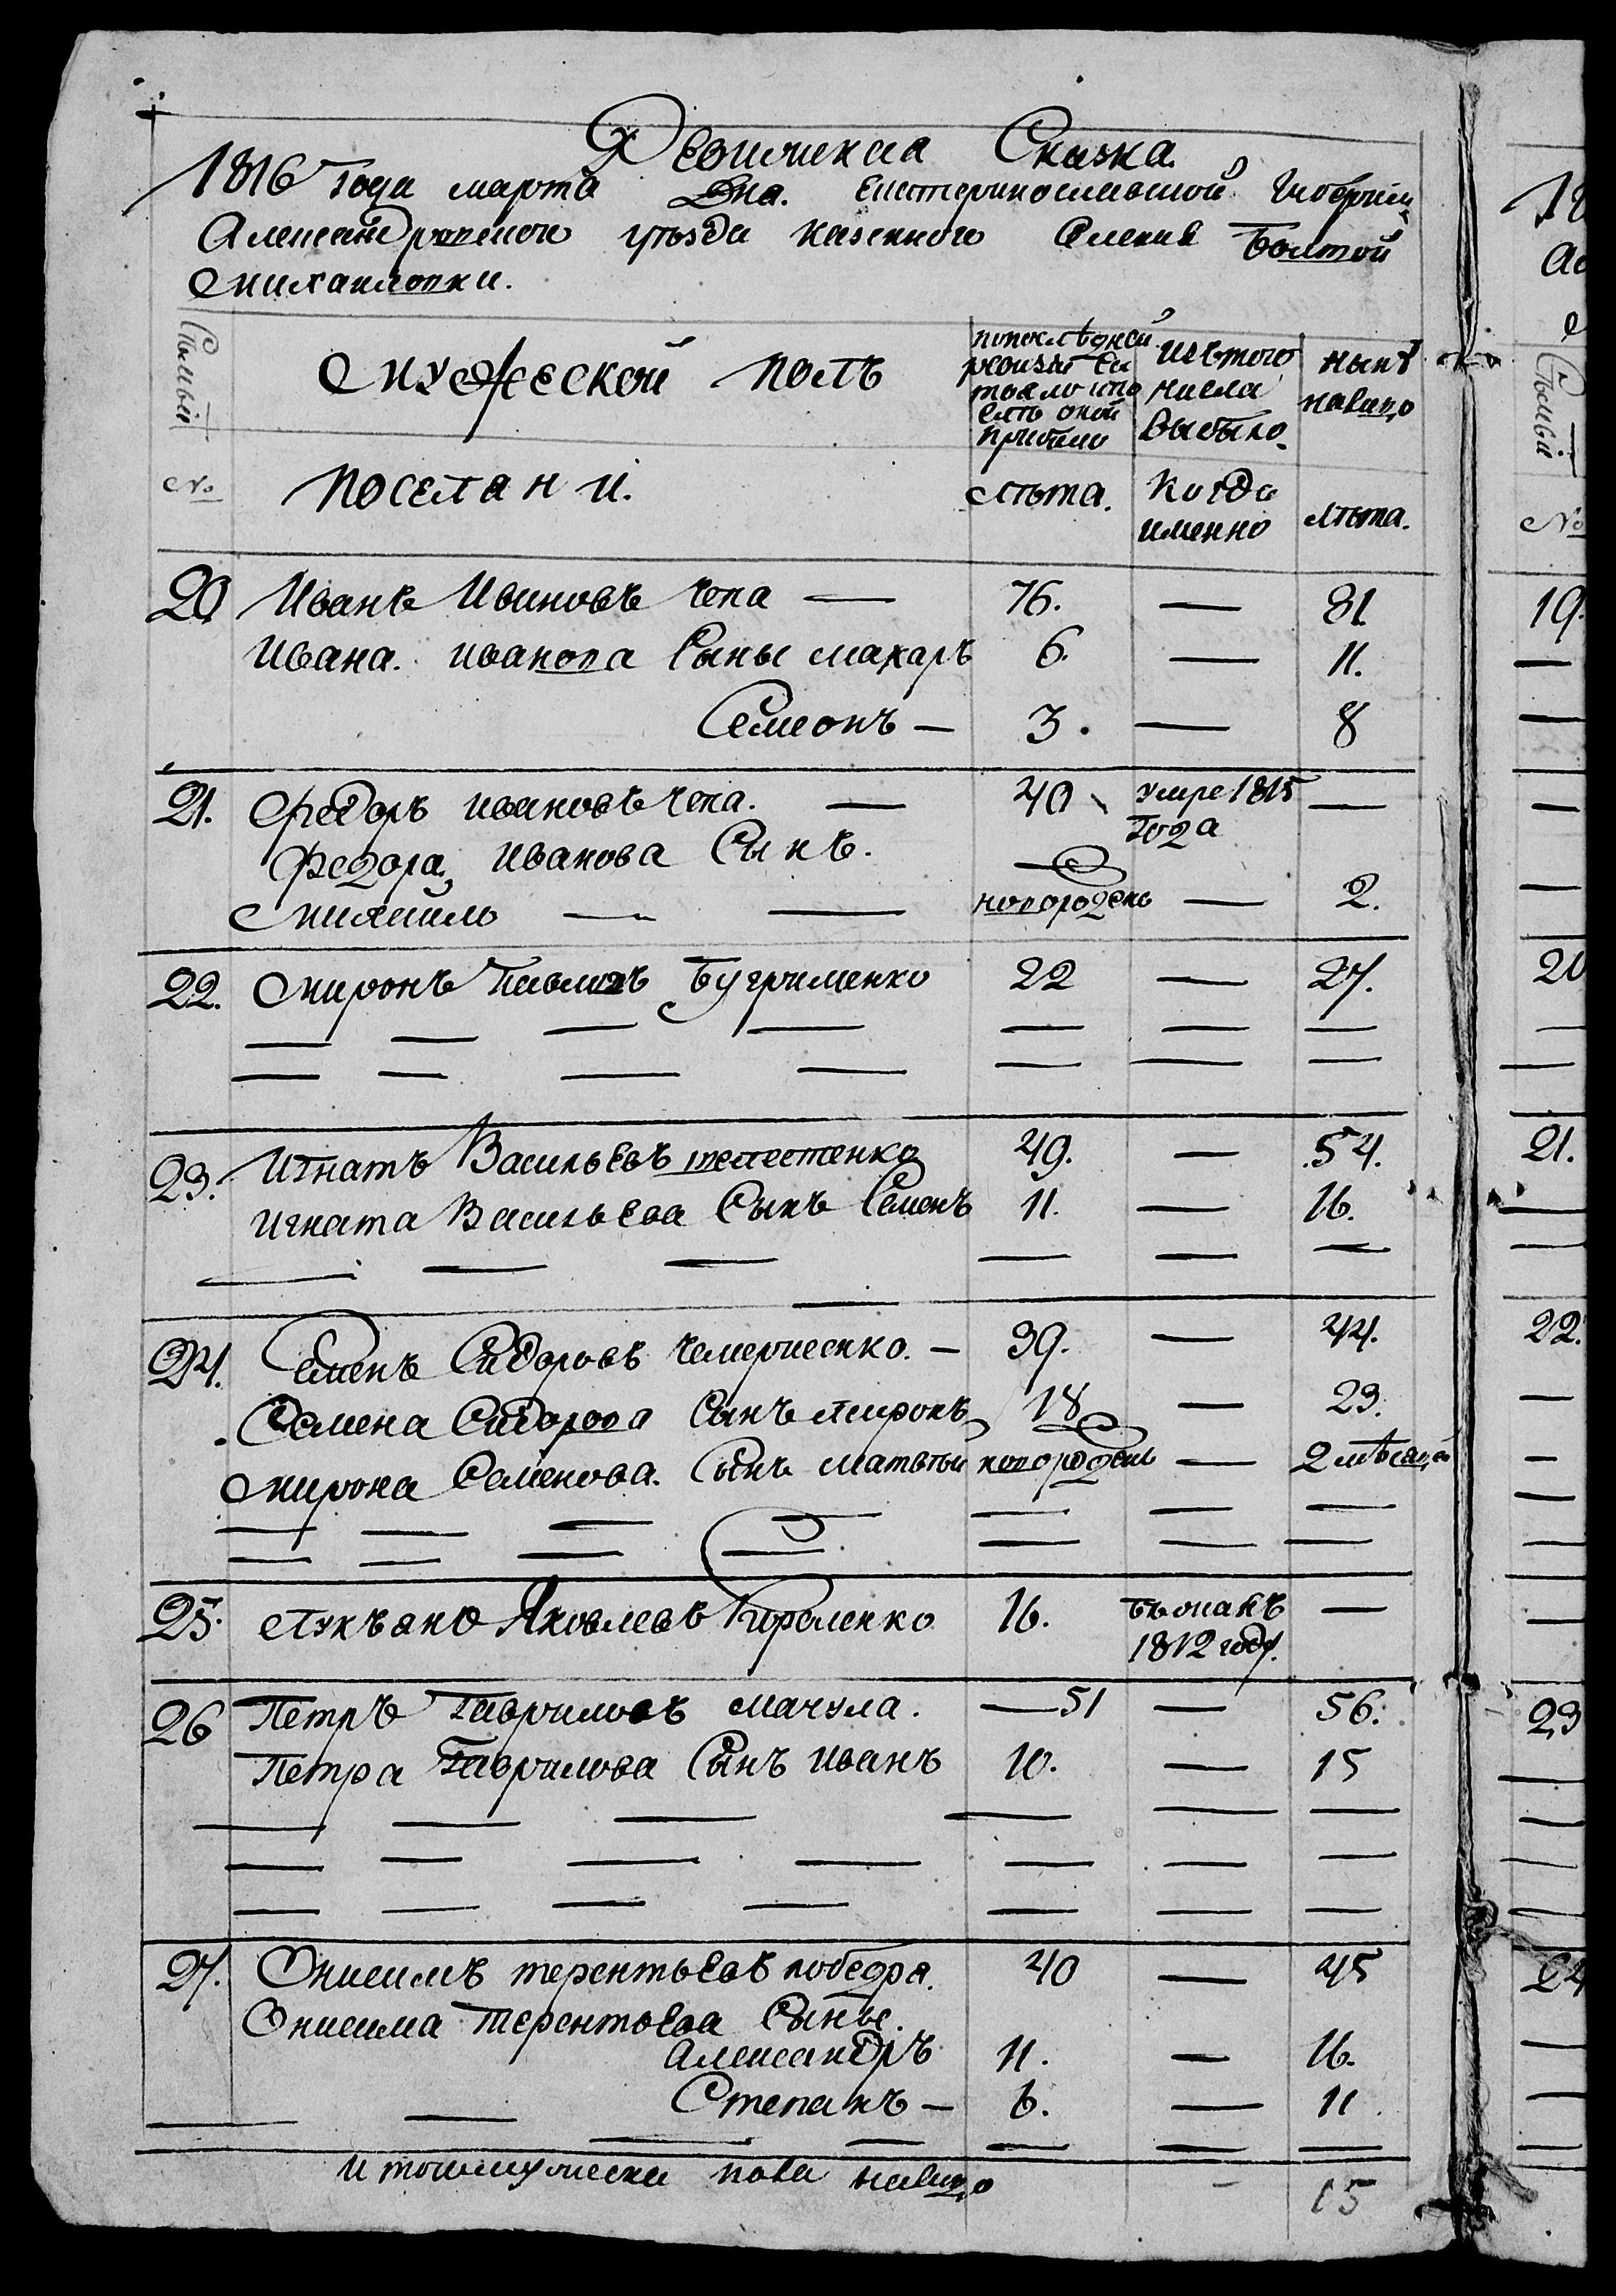 Ревижская Сказка
1816 Года марта Дня. Екатеринославской Губернии
Александровского уѣзда казенного Селения Болшой
Михайловки.
Семьи
Мужеской полъ
по последней ревизии состояло и после оной прибыло
Изъ того числа выбыло
нынѣ налицо
№
поселяни.
Лѣта.
Когда именно
лѣта.
20 Иванъ Ивановъ Чепа — 76. — 81
Ивана Иванова Сыны Макаръ 6. — 11.
Семеонъ — 3. — 8
21. Федоръ Ивановъ Чепа. — 40 умре 1815 Года —
Федора Иванова Сынъ.
Михаилъ — — новорожденъ — 2.
22. Миронъ Павловъ Бугрименко 22 — 27.
23. Игнатъ Васильевъ 49. — 54.
Игната Васильева Сынъ Семенъ 11. — 16.
24. Семенъ Сидоровъ — 39. — 44.
Семена Сидорова Сынъ Миронъ 18 — 23.
Мирона Семенова Сынъ Матвѣй новорожденъ — 2 мѣсяца
25. Лукъянъ Яковлевъ 16. 1812 году. —
26 Петръ Гавриловъ Мачула. — 51 — 56.
Петра Гаврилова Сынъ Иванъ 10. — 15
27. Онисимъ Терентьевъ победра. 40 — 45
Онисима Терентьева Сыны.
Александръ 11. — 16.
Степанъ — 6. — 11.
Итого мужеска пола налицо - 15
19.
20
21.
22.
23
24
Семьи
№